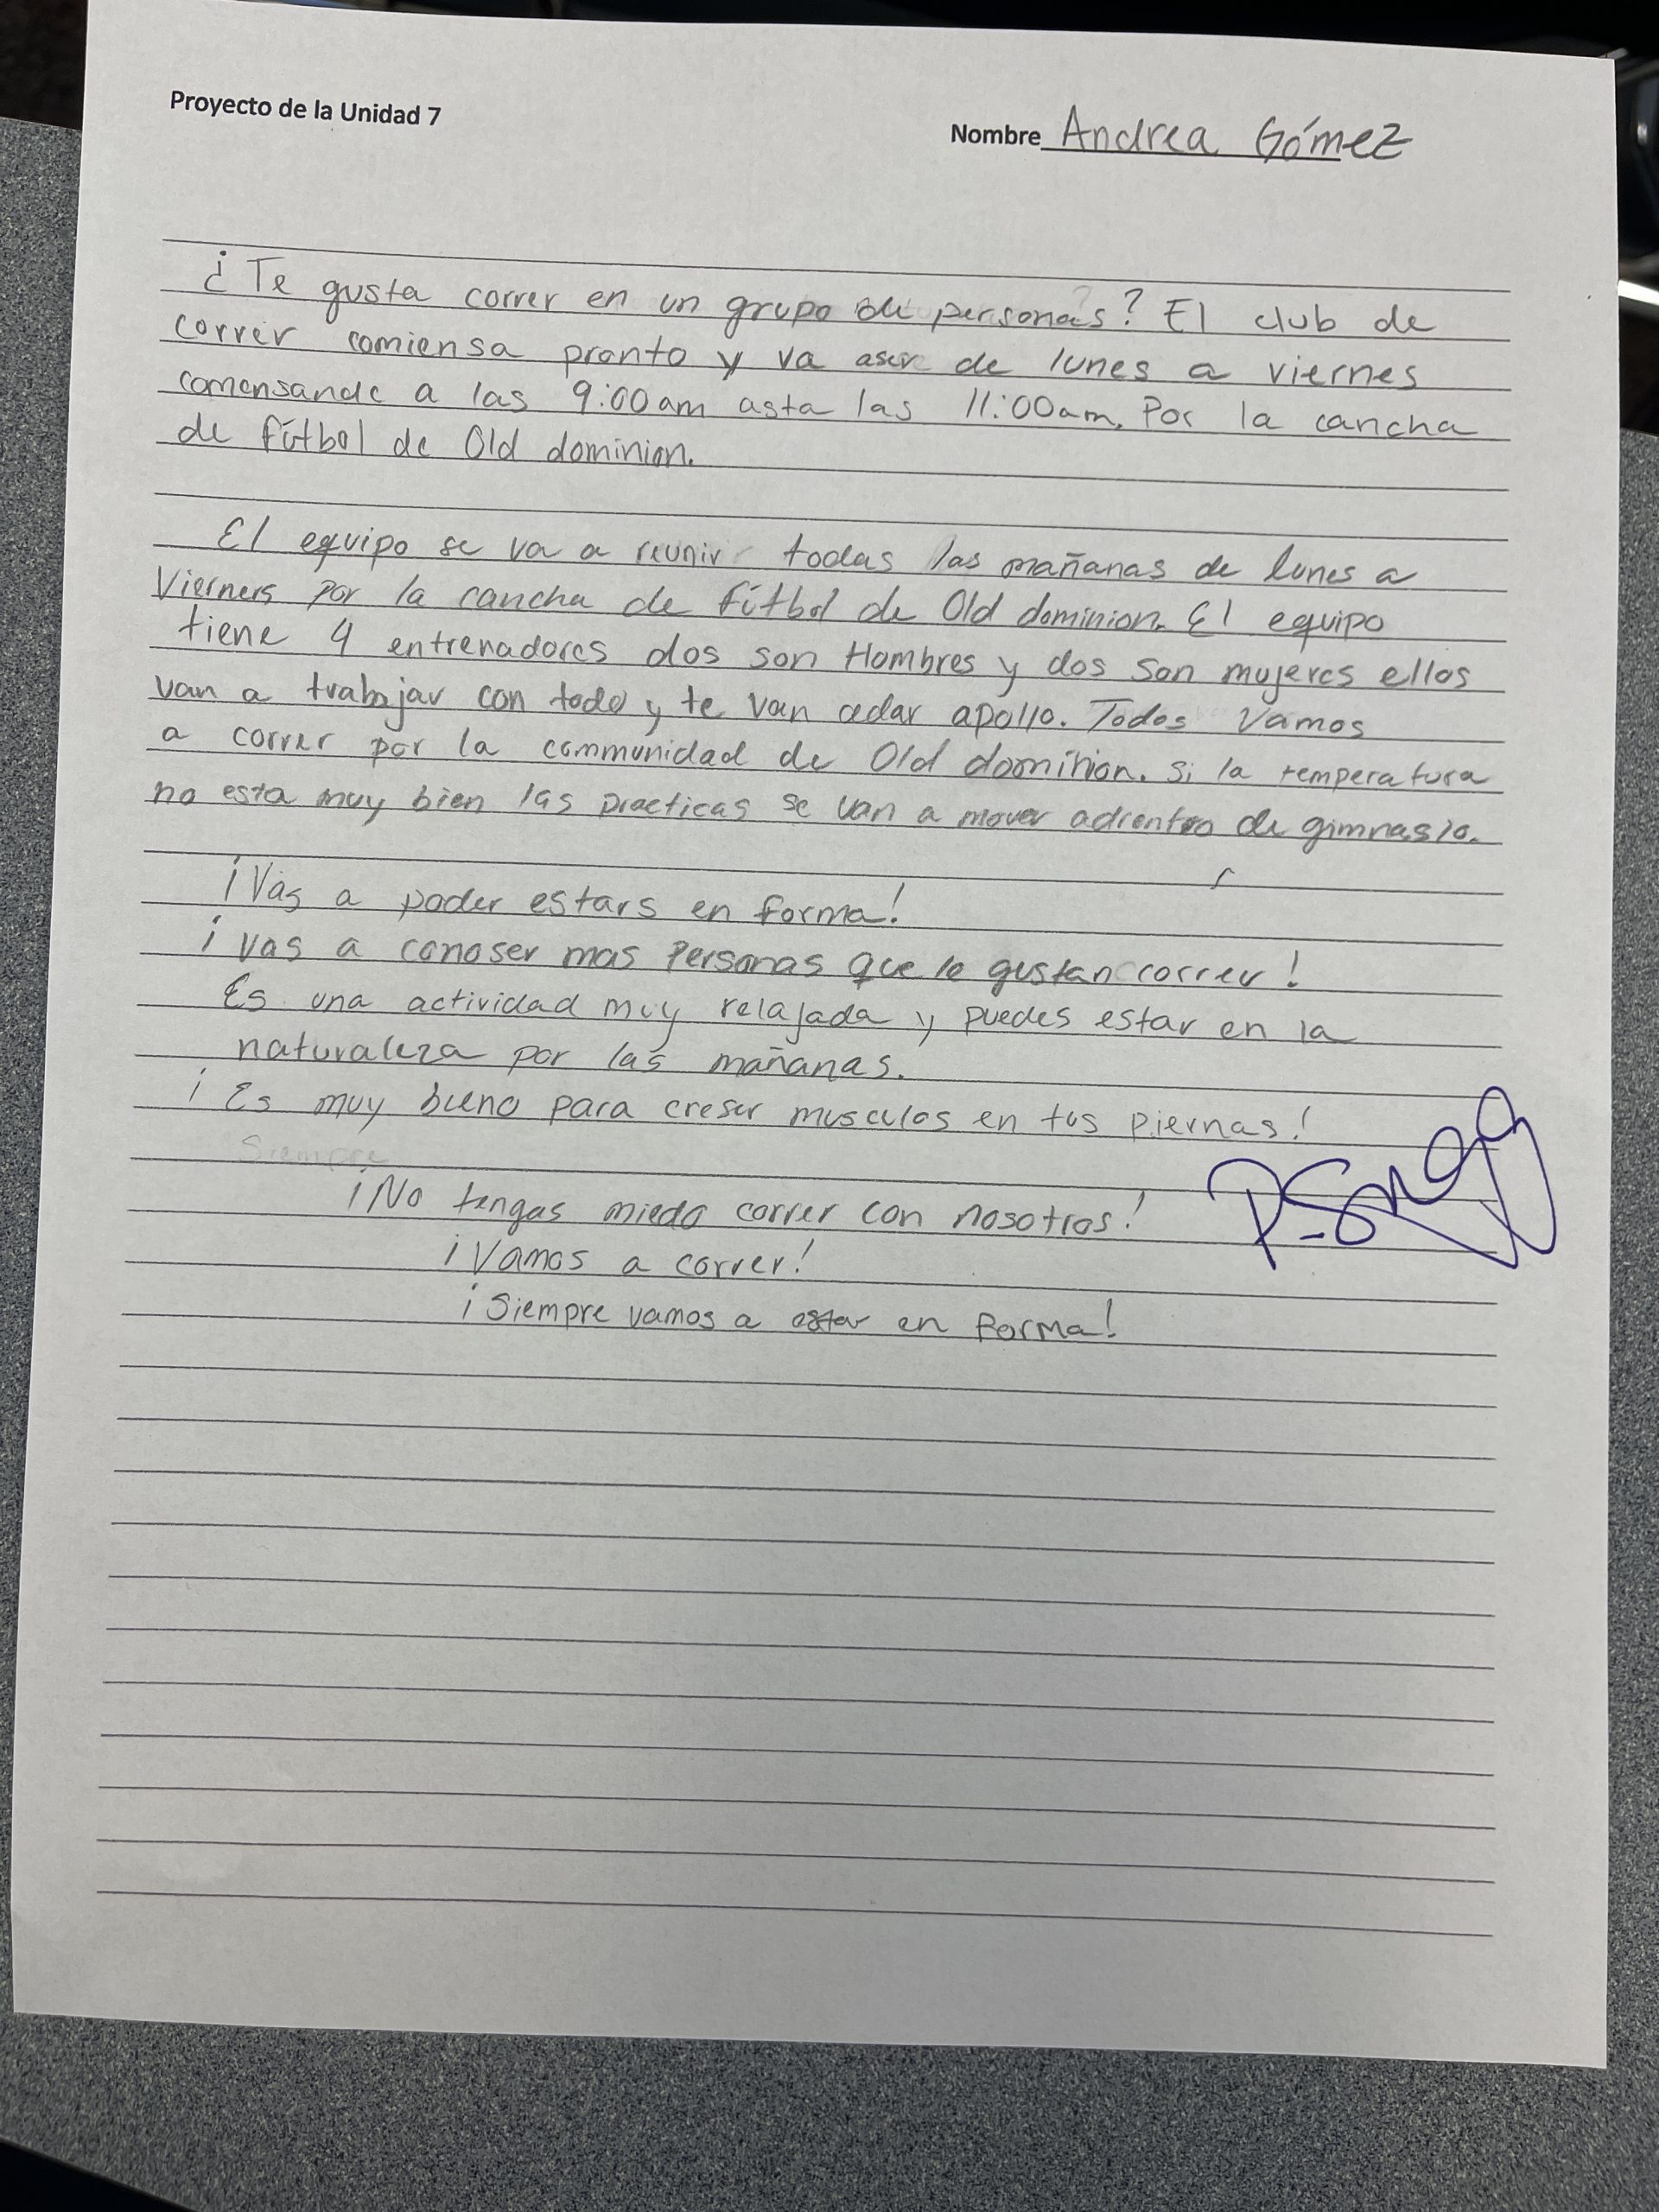 Proyecto de la Unidad 7
Nombre Andrea Gómez
¿Te gusta correr en un grupo de personas? El club de
correr comiensa pronto y va aser de lunes a viernes
comensando a las 9:00am asta las 11:00am. Por la cancha
de fútbol de Old dominion.
El equipo se va a reunir todas las mañanas de lunes a
Vierners por la cancha de fútbol de Old dominion. El equipo
tiene 4 entrenadores dos son Hombres y dos son mujeres ellos
van a trabajar con todo y te van adar apollo. Todos vamos
a correr por la communidad de Old dominion. Si la temperatura
no esta muy bien las practicas se van a mover adrentro de gimnasio.
¡Vas a poder estars en forma!
¡vas a conoser mas Personas que le gustan correr!
Es una actividad muy relajada y puedes estar en la
naturaleza por las mañanas.
¡Es muy bueno para creser musculos en tus piernas!
Siempre
¡No tengas miedo correr con nosotros!
¡Vamos a correr!
¡Siempre vamos a estar en forma!